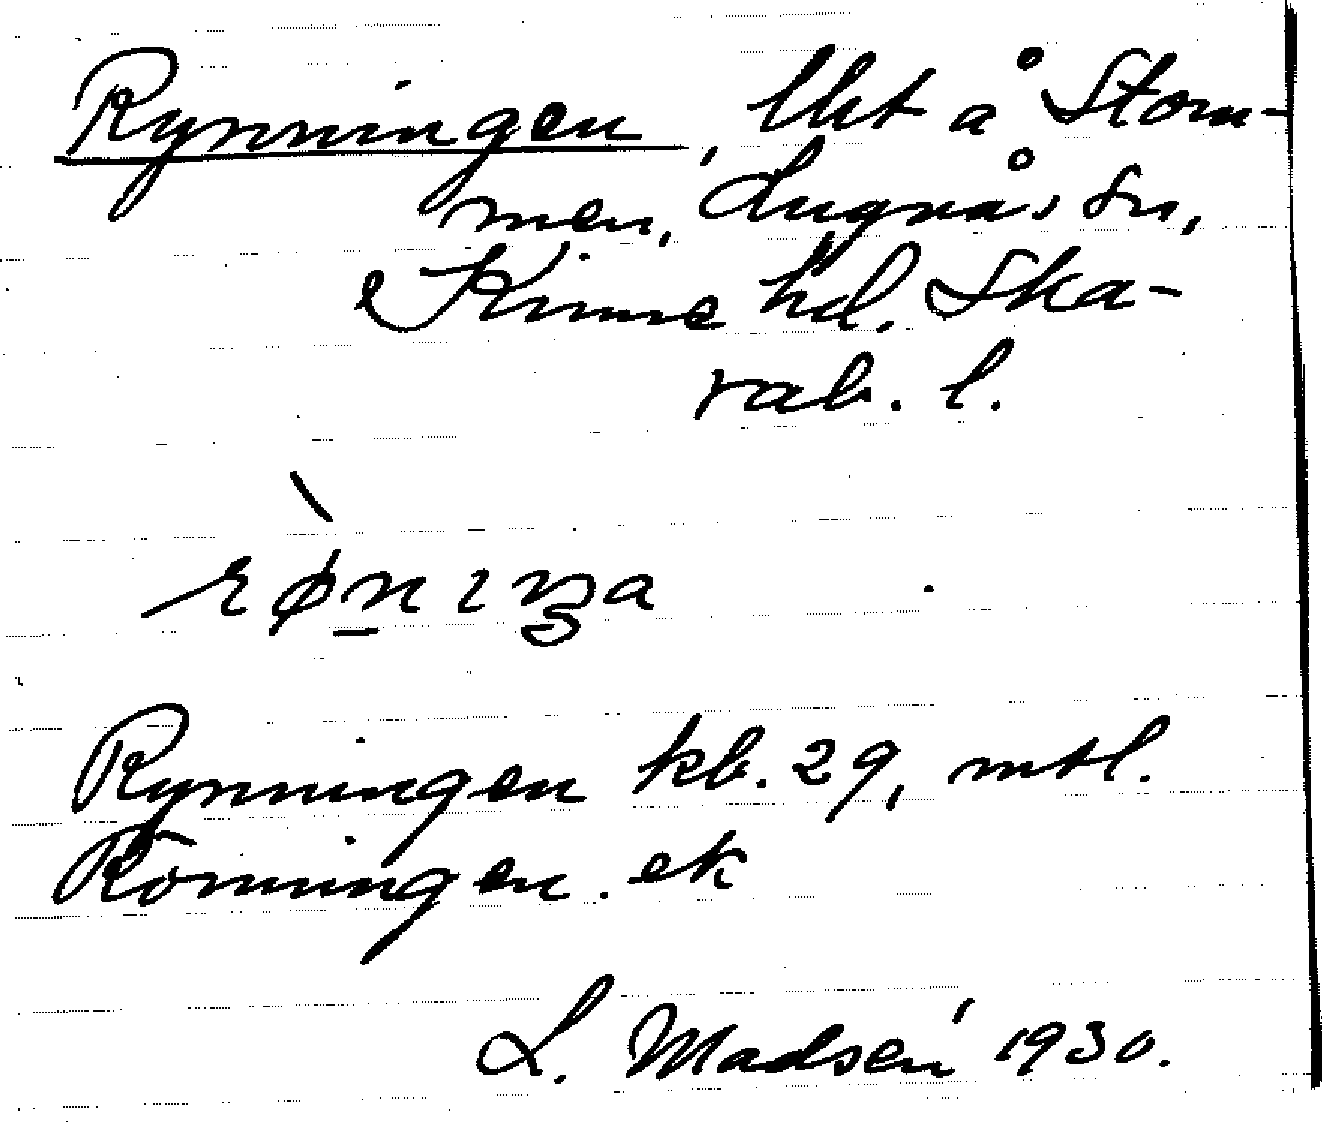 Rynningen, lht å Stom-
men, Lugnås sn,
Kinne hd. Ska-
rab. l.
Rynningen kb. 29, mtl.
Rönningen. ek
L. Madsén 1930.